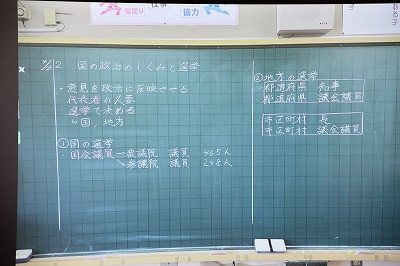 協力
国の政治のしくみと選挙
・意見を政治に反映させる
・代表者が必要
選挙で決める
↳国、地方
①国の選挙
・国会議員 衆議院 議員 465人
参議院 議員 248人
②地方の選挙
都道府県 知事
都道府県 議会議員
市区町村 長
市区町村 議会議員